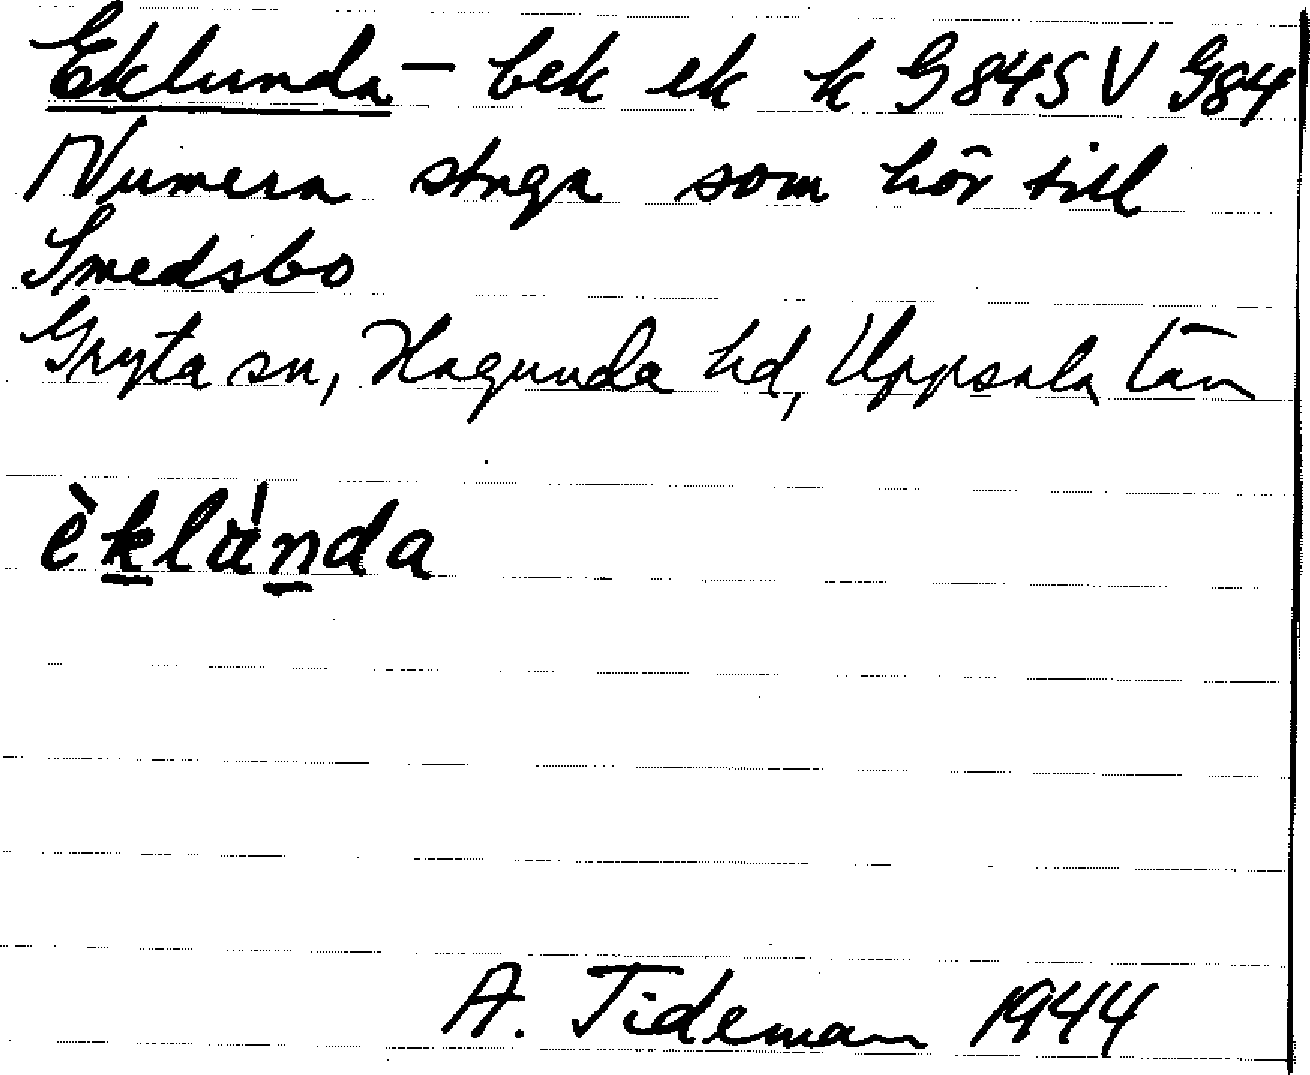 Eklunda - bek ek k G84S V G84
Numera stuga som hör till
Smedsbo
Gryta sn, Hagunda hd, Uppsala län
èklùnda
A. Tideman 1944